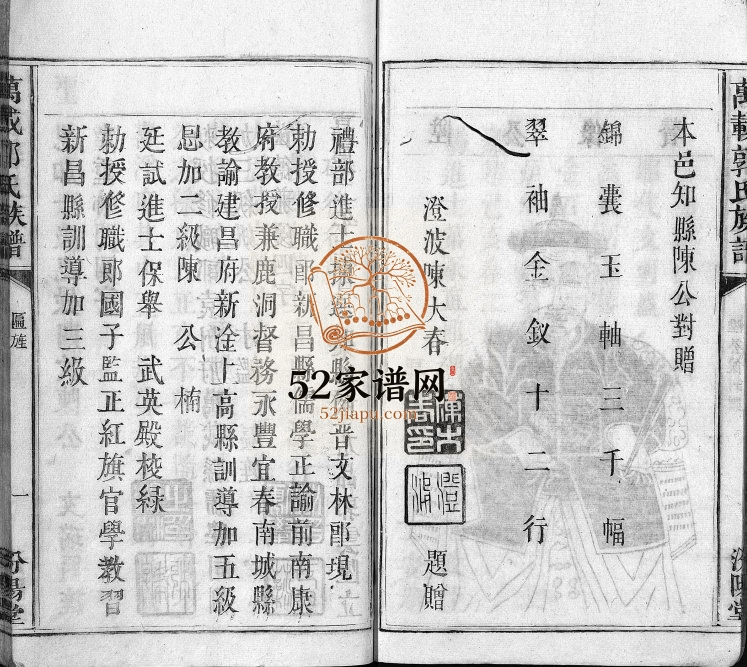 萬載郭氏族譜
汾陽堂
本邑知縣陳公對贈
錦囊玉軸三千幅
翠袖金釵十二行
澄波陳大春
題贈
陳大春印
澄波
禮部進士
晋文林郎現
勅授修職郎新昌縣儒學正諭前南康
府教授兼鹿洞督務永豐宜春南城縣
教諭建昌府新淦上高縣訓導加五級
恩加二級陳公楠
廷試進士保舉 武英殿校緑
勅授修職郎國子監正紅旗官學教習
新昌縣訓導加三級
萬載郭氏族譜
匾旌
一
汾陽堂
52家谱网
52jiapu.com